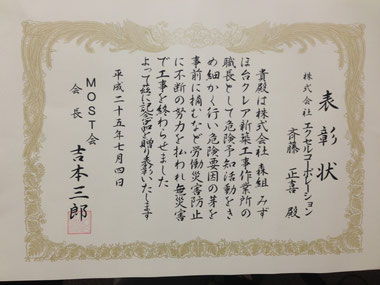 表彰状
株式会社 エクセルコーポレーション
斉藤 正喜 殿
貴殿は株式会社 森組 みず
ほ台クレア新築工事作業所の
職長として危険予知活動をき
め細かく行い危険要因の芽を
事前に摘むなど労働災害防止
に不断の努力を払われ無災害
で工事を終わらせました
よって茲に記念品を贈り表彰いたします
平成二十五年七月四日
MOST会
会長 吉本三郎